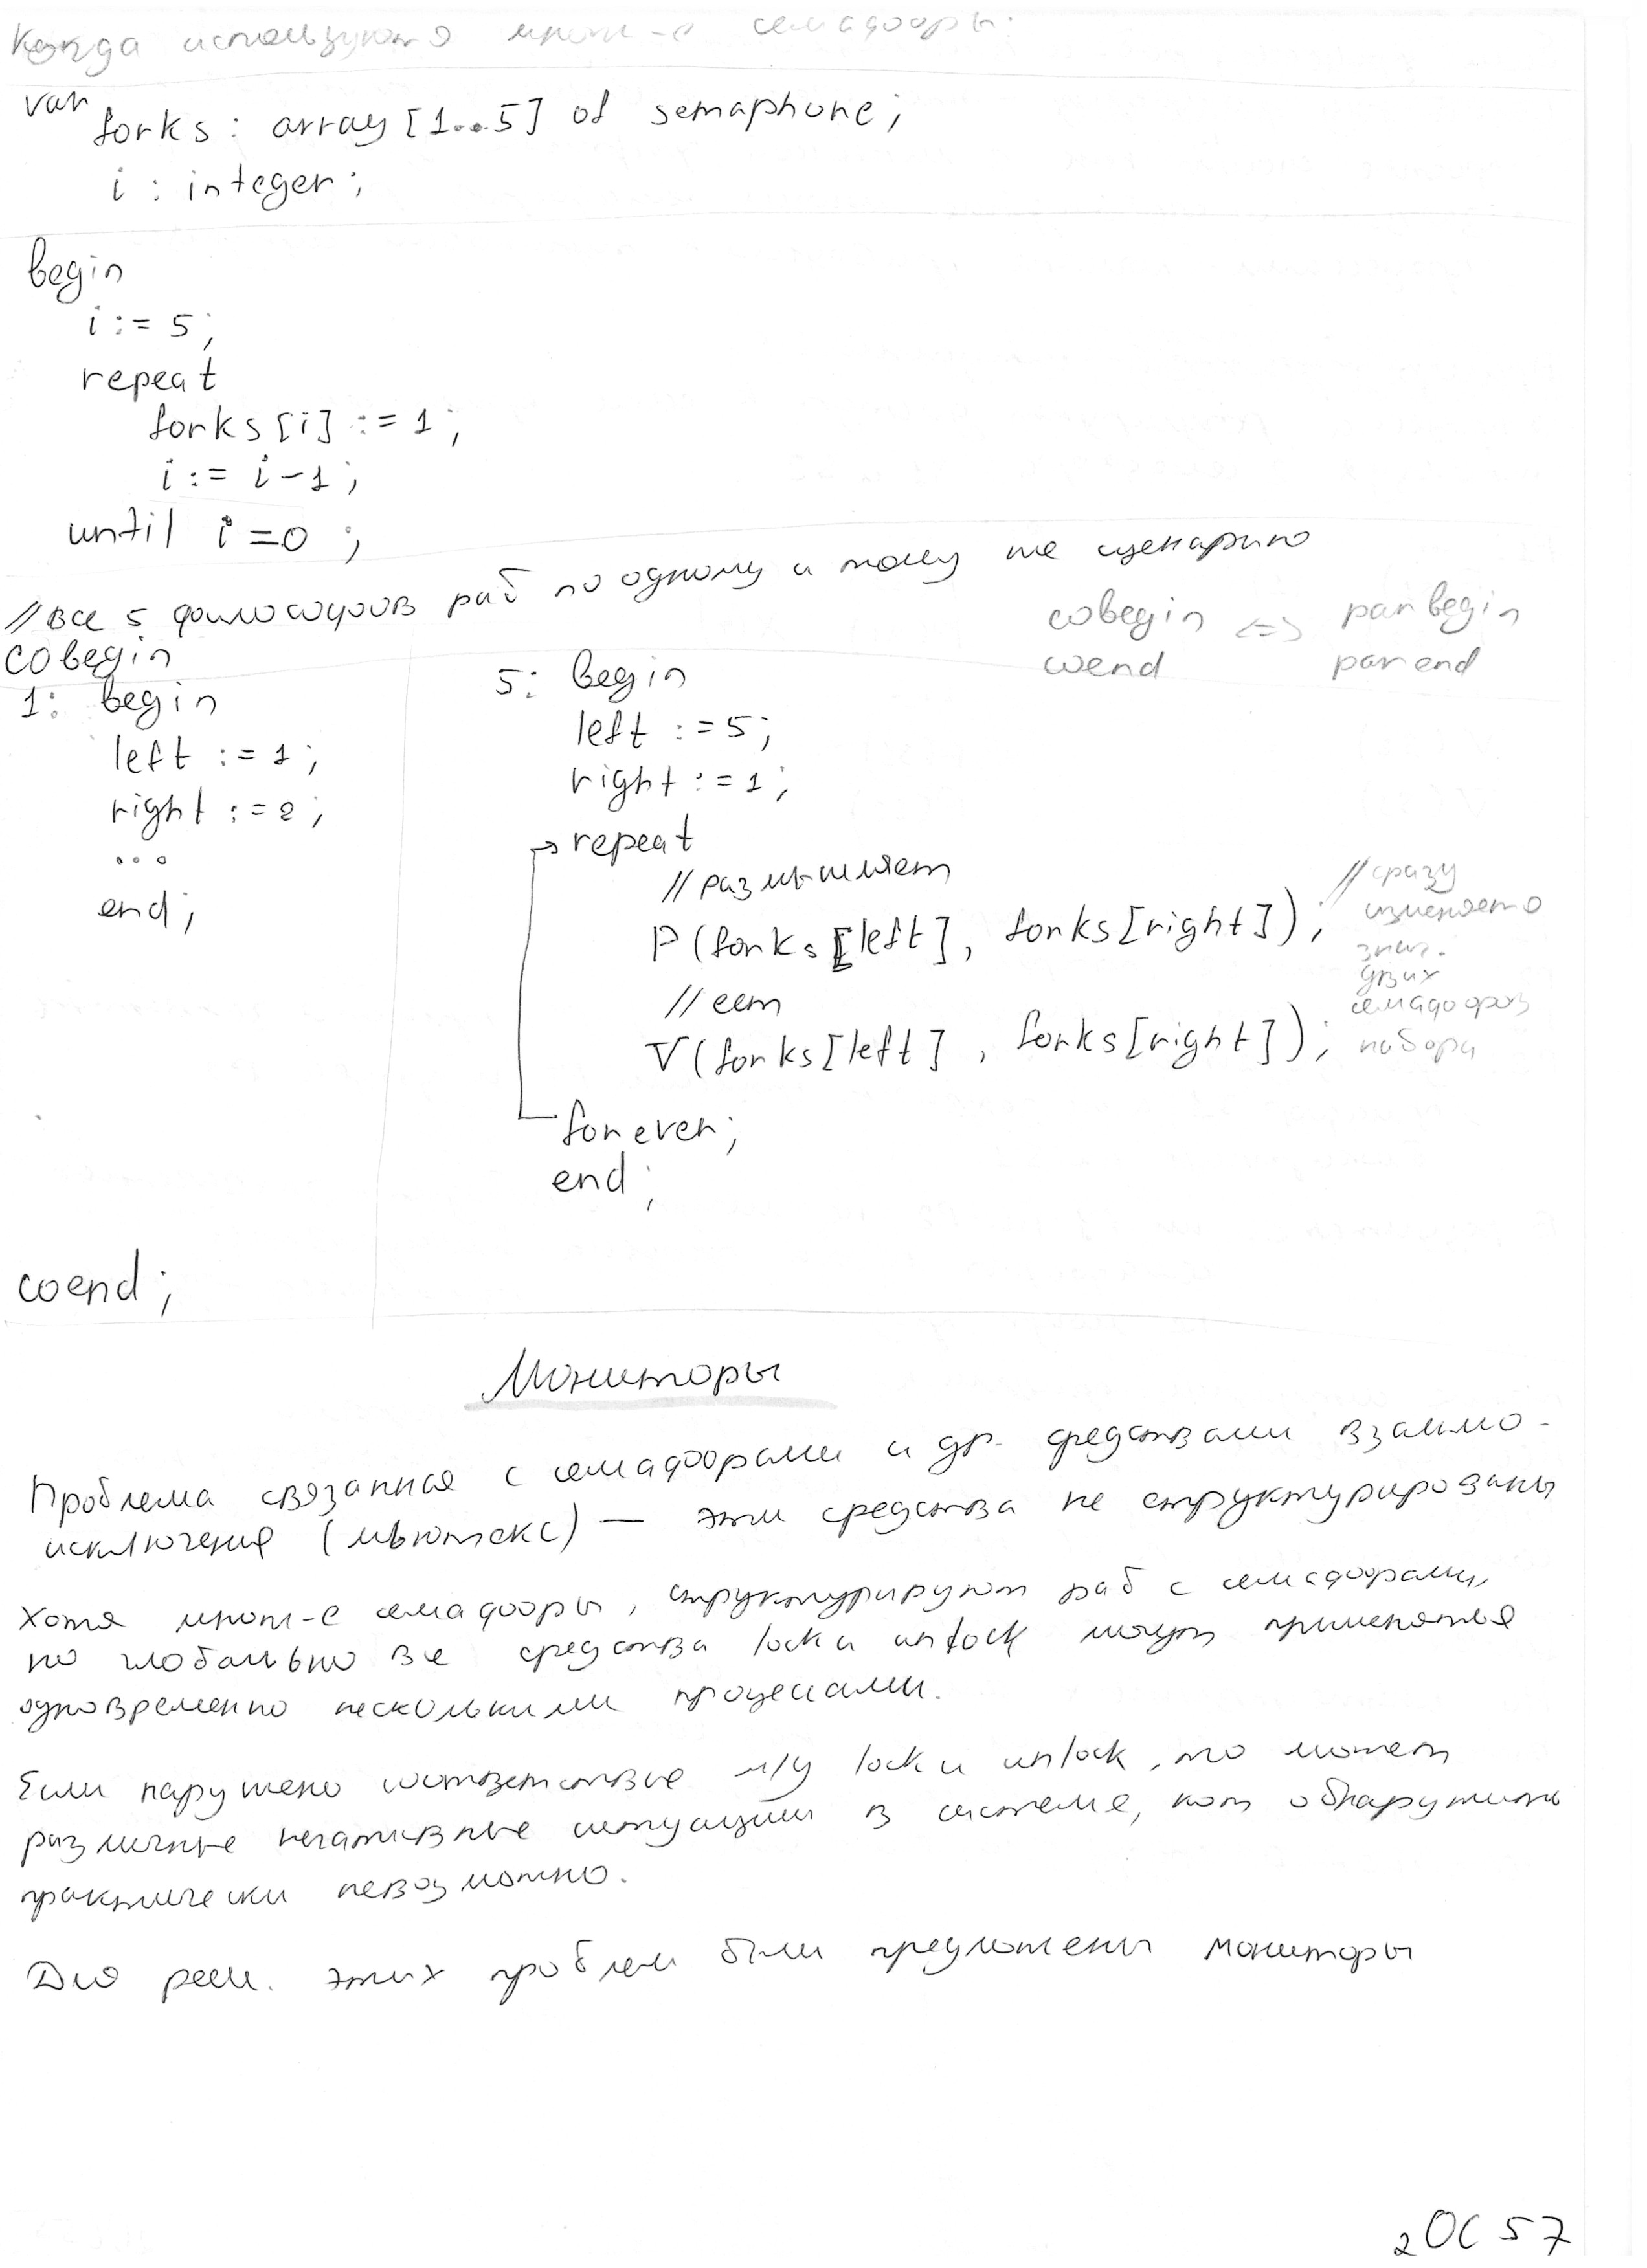 Когда используются множ-е семафоры:
var
forks: array [1...5] of semaphore;
i : integer;
begin
i := 5;
repeat
forks[i] := 1;
i := i-1;
until i = 0 ;
// все 5 философов раб по одному и тому же сценарию
cobegin <=> parbegin
coend parend
cobegin
1: begin
left := 1;
right := 2;
...
end;
5: begin
left := 5;
right := 1;
repeat
// размышляет
P(forks[left], forks[right]);
// сразу
изменяет
знач.
двух
семафоров
набора
// ест
V(forks[left], forks[right]);
forever;
end;
coend;
Мониторы
Проблема связанная с семафорами и др. средствами взаимо-
исключения (мьютекс) — эти средства не структурированы
Хотя множ-е семафоры, структурируют раб с семафорами,
но глобально все средства lock и unlock могут применяться
одновременно несколькими процессами.
Если нарушено соответствие м/у lock и unlock, то может
различные негативные ситуации в системе, кот обнаружить
практически невозможно.
Для реш. этих проблем были предложены мониторы
2 ОС 57